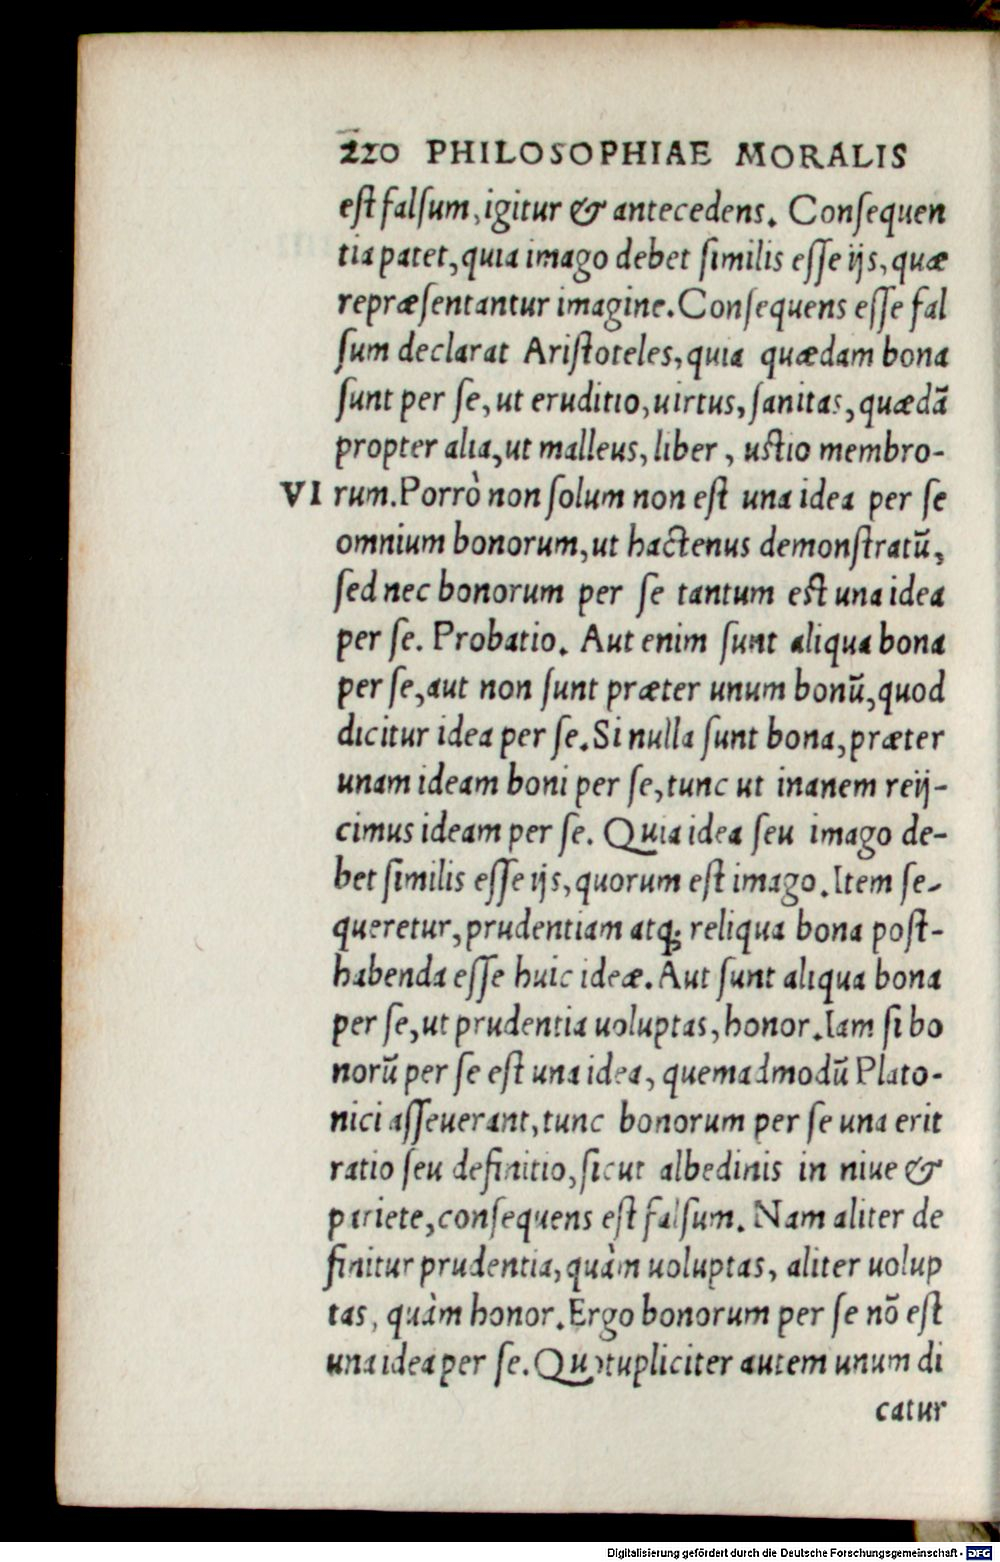 210 PHILOSOPHIAE MORALIS
est falsum, igitur & antecedens. Consequen
tia patet, quia imago debet similis esse ijs, quæ
repræsentantur imagine. Consequens esse fal
sum declarat Aristoteles, quia quædam bona
sunt per se, ut eruditio, uirtus, sanitas, quædā
propter alia, ut malleus, liber, ustio membro-
VI rum. Porrò non solum non est una idea per se
omnium bonorum, ut hactenus demonstratū,
sed nec bonorum per se tantum est una idea
per se. Probatio. Aut enim sunt aliqua bona
per se, aut non sunt præter unum bonū, quod
dicitur idea per se. Si nulla sunt bona, præter
unam ideam boni per se, tunc ut inanem reij-
cimus ideam per se. Quia idea seu imago de-
bet similis esse ijs, quorum est imago. Item se-
queretur, prudentiam atq; reliqua bona post-
habenda esse huic ideæ. Aut sunt aliqua bona
per se, ut prudentia uoluptas, honor. Iam si bo
norū per se est una idea, quemadmodū Plato-
nici asseuerant, tunc bonorum per se una erit
ratio seu definitio, sicut albedinis in niue &
pariete, consequens est falsum. Nam aliter de
finitur prudentia, quàm uoluptas, aliter uolup
tas, quàm honor. Ergo bonorum per se nō est
una idea per se. Quotupliciter autem unum di
catur
Digitalisierung gefördert durch die Deutsche Forschungsgemeinschaft - DFG